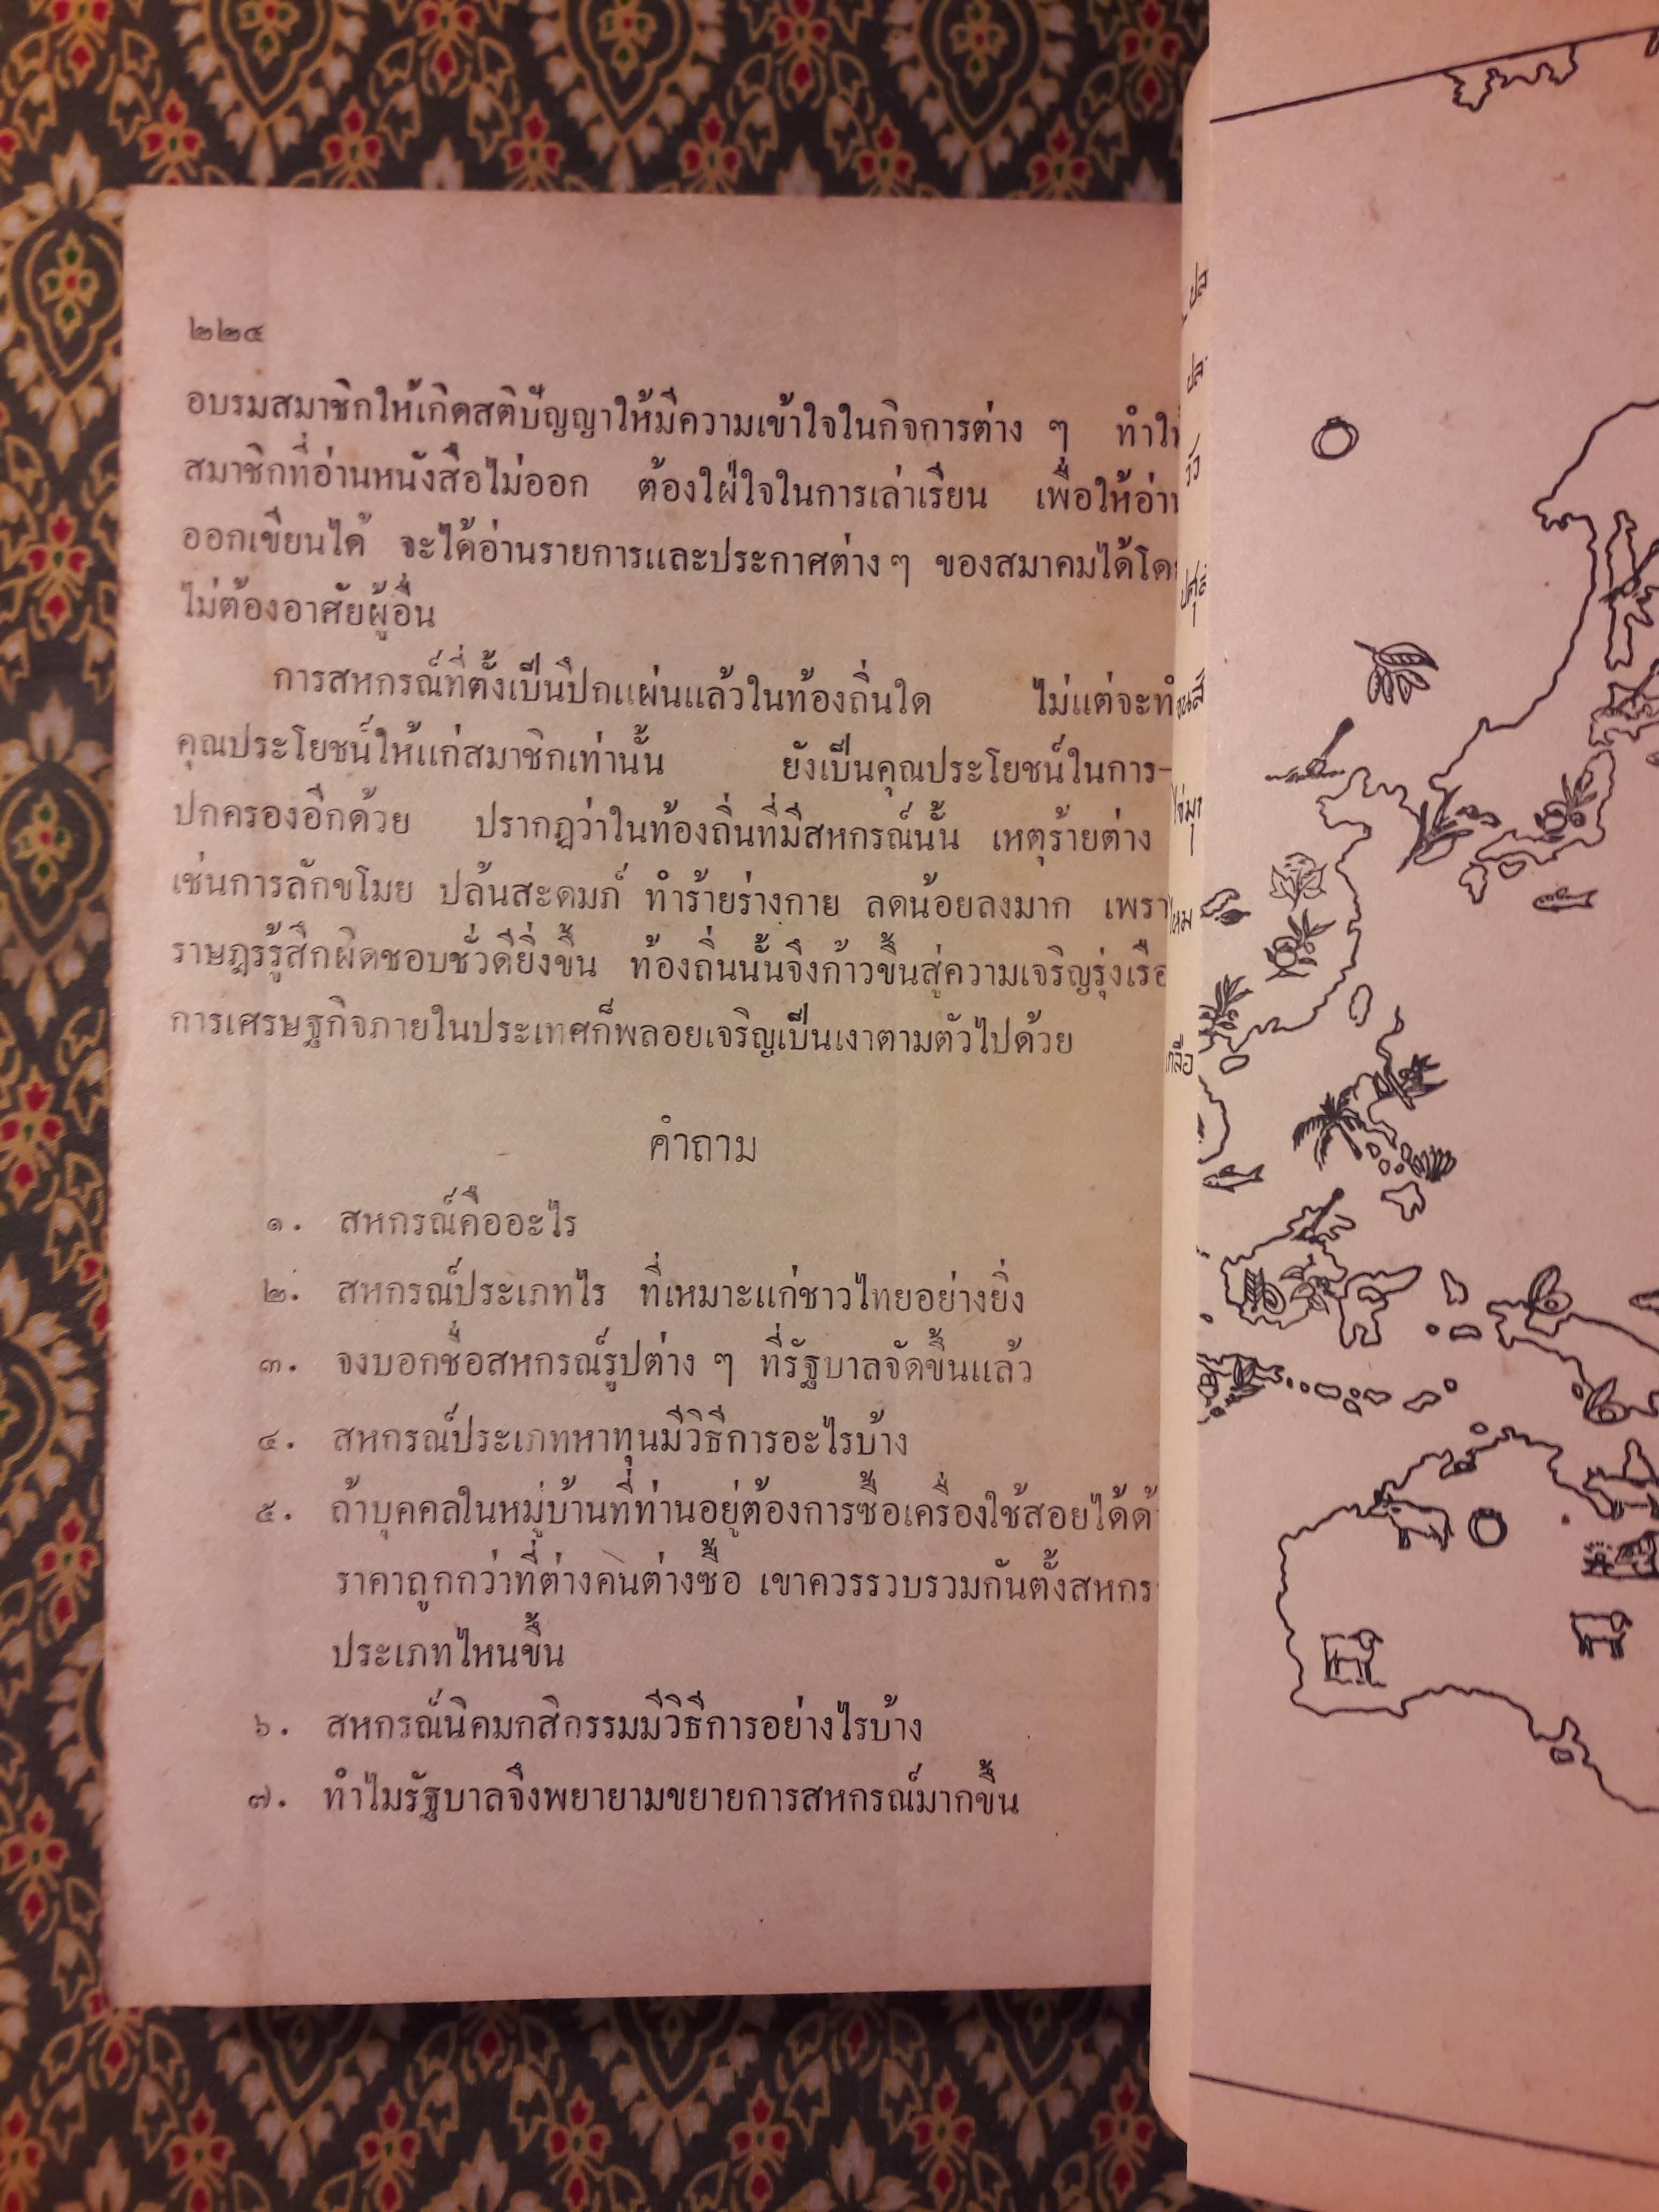 ๒๒๔
อบรมสมาชิกให้เกิดสติปัญญาให้มีความเข้าใจในกิจการต่าง ๆ
สมาชิกที่อ่านหนังสือไม่ออก ต้องใฝ่ใจในการเล่าเรียน เพื่อให้
ออกเขียนได้ จะได้อ่านรายการและประกาศต่าง ๆ ของสมาคมได้
ไม่ต้องอาศัยผู้อื่น
การสหกรณ์ที่ตั้งเป็นปึกแผ่นแล้วในท้องถิ่นใด ไม่แต่จะ
คุณประโยชน์ให้แก่สมาชิกเท่านั้น ยังเป็นคุณประโยชน์ในการ-
ปกครองอีกด้วย ปรากฏว่าในท้องถิ่นที่มีสหกรณ์นั้น เหตุร้ายต่าง
เช่นการลักขโมย ปล้นสะดมภ์ ทำร้ายร่างกาย ลดน้อยลงมาก
ราษฎรรู้สึกผิดชอบชั่วดียิ่งขึ้น ท้องถิ่นนั้นจึงก้าวขึ้นสู่ความเจริญ
การเศรษฐกิจภายในประเทศก็พลอยเจริญเป็นเงาตามตัวไปด้วย
คำถาม
๑. สหกรณ์คืออะไร
๒. สหกรณ์ประเภทไร ที่เหมาะแก่ชาวไทยอย่างยิ่ง
๓. จงบอกชื่อสหกรณ์รูปต่าง ๆ ที่รัฐบาลจัดขึ้นแล้ว
๔. สหกรณ์ประเภทหาทุนมีวิธีการอะไรบ้าง
๕. ถ้าบุคคลในหมู่บ้านที่ท่านอยู่ต้องการซื้อเครื่องใช้สอยได้
ราคาถูกกว่าที่ต่างคนต่างซื้อ เขาควรรวบรวมกันตั้ง
ประเภทไหนขึ้น
๖. สหกรณ์นิคมกสิกรรมมีวิธีการอย่างไรบ้าง
๗. ทำไมรัฐบาลจึงพยายามขยายการสหกรณ์มากขึ้น